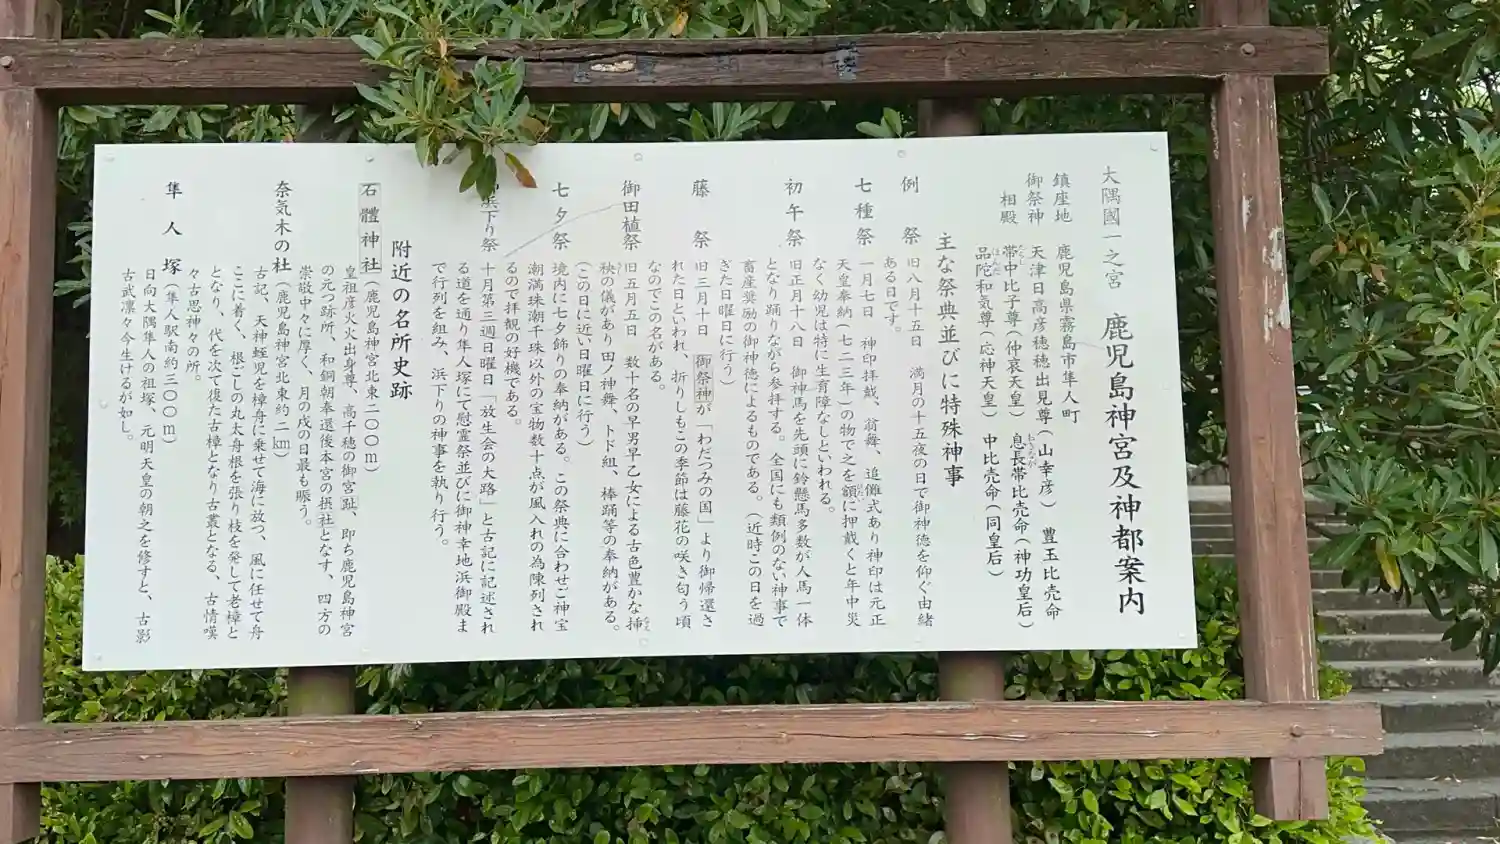 大隅國一之宮　鹿児島神宮及神都案内
鎮座地　鹿児島県霧島市隼人町
御祭神　天津日高彦穂穂出見尊(山幸彦)　豊玉比売命
相殿　帯中比子尊(仲哀天皇)　息長帯比売命(神功皇后)
品陀和気尊(応神天皇)　中比売命(同皇后)
主な祭典並びに特殊神事
例祭　旧八月十五日　満月の十五夜の日で御神徳を仰ぐ由緒
ある日です。
七種祭　一月七日　神印拝戴、翁舞、追儺式あり神印は元正
天皇奉納(七二三年)の物で之を額に押戴くと年中災
なく幼児は特に生育障なしといわれる。
初午祭　旧正月十八日　御神馬を先頭に鈴懸馬多数が人馬一体
となり踊りながら参拝する。全国にも類例のない神事で
畜産奨励の御神徳によるものである。(近時この日を過
ぎた日曜日に行う)
藤祭　旧三月十日　御祭神が「わだつみの国」より御帰還さ
れた日といわれ、折りしもこの季節は藤花の咲き匂う頃
なのでこの名がある。
御田植祭　旧五月五日　数十名の早男早乙女による古色豊かな挿
秧の儀があり田ノ神舞、トド組、棒踊等の奉納がある。
(この日に近い日曜日に行う)
七夕祭　境内に七夕飾りの奉納がある。この祭典に合わせご神宝
潮満珠潮干珠以外の宝物数十点が風入れの為陳列され
るので拝観の好機である。
浜下り祭　十月第三週日曜日「放生会の大路」と古記に記述され
る道を通り隼人塚にて慰霊祭並びに御神幸地浜御殿ま
で行列を組み、浜下りの神事を執り行う。
附近の名所史跡
石體神社(鹿児島神宮北東二〇〇m)
皇祖彦火火出身尊、高千穂の御宮趾、即ち鹿児島神宮
の元つ跡所、和銅朝奉還後本宮の摂社となす、四方の
崇敬中々に厚く、月の戌の日最も賑う。
奈気木の社(鹿児島神宮北東約二km)
古記、天神蛭児を樟舟に乗せて海に放つ、風に任せて舟
ここに着く、根ごしの丸太舟根を張り枝を発して老樟と
となり、代を次て復た古樟となり古叢となる、古情嘆
々古思神々の所。
隼人塚(隼人駅南約三〇〇m)
日向大隅隼人の祖塚、元明天皇の朝之を修すと、古影
古武凛々今生けるが如し。